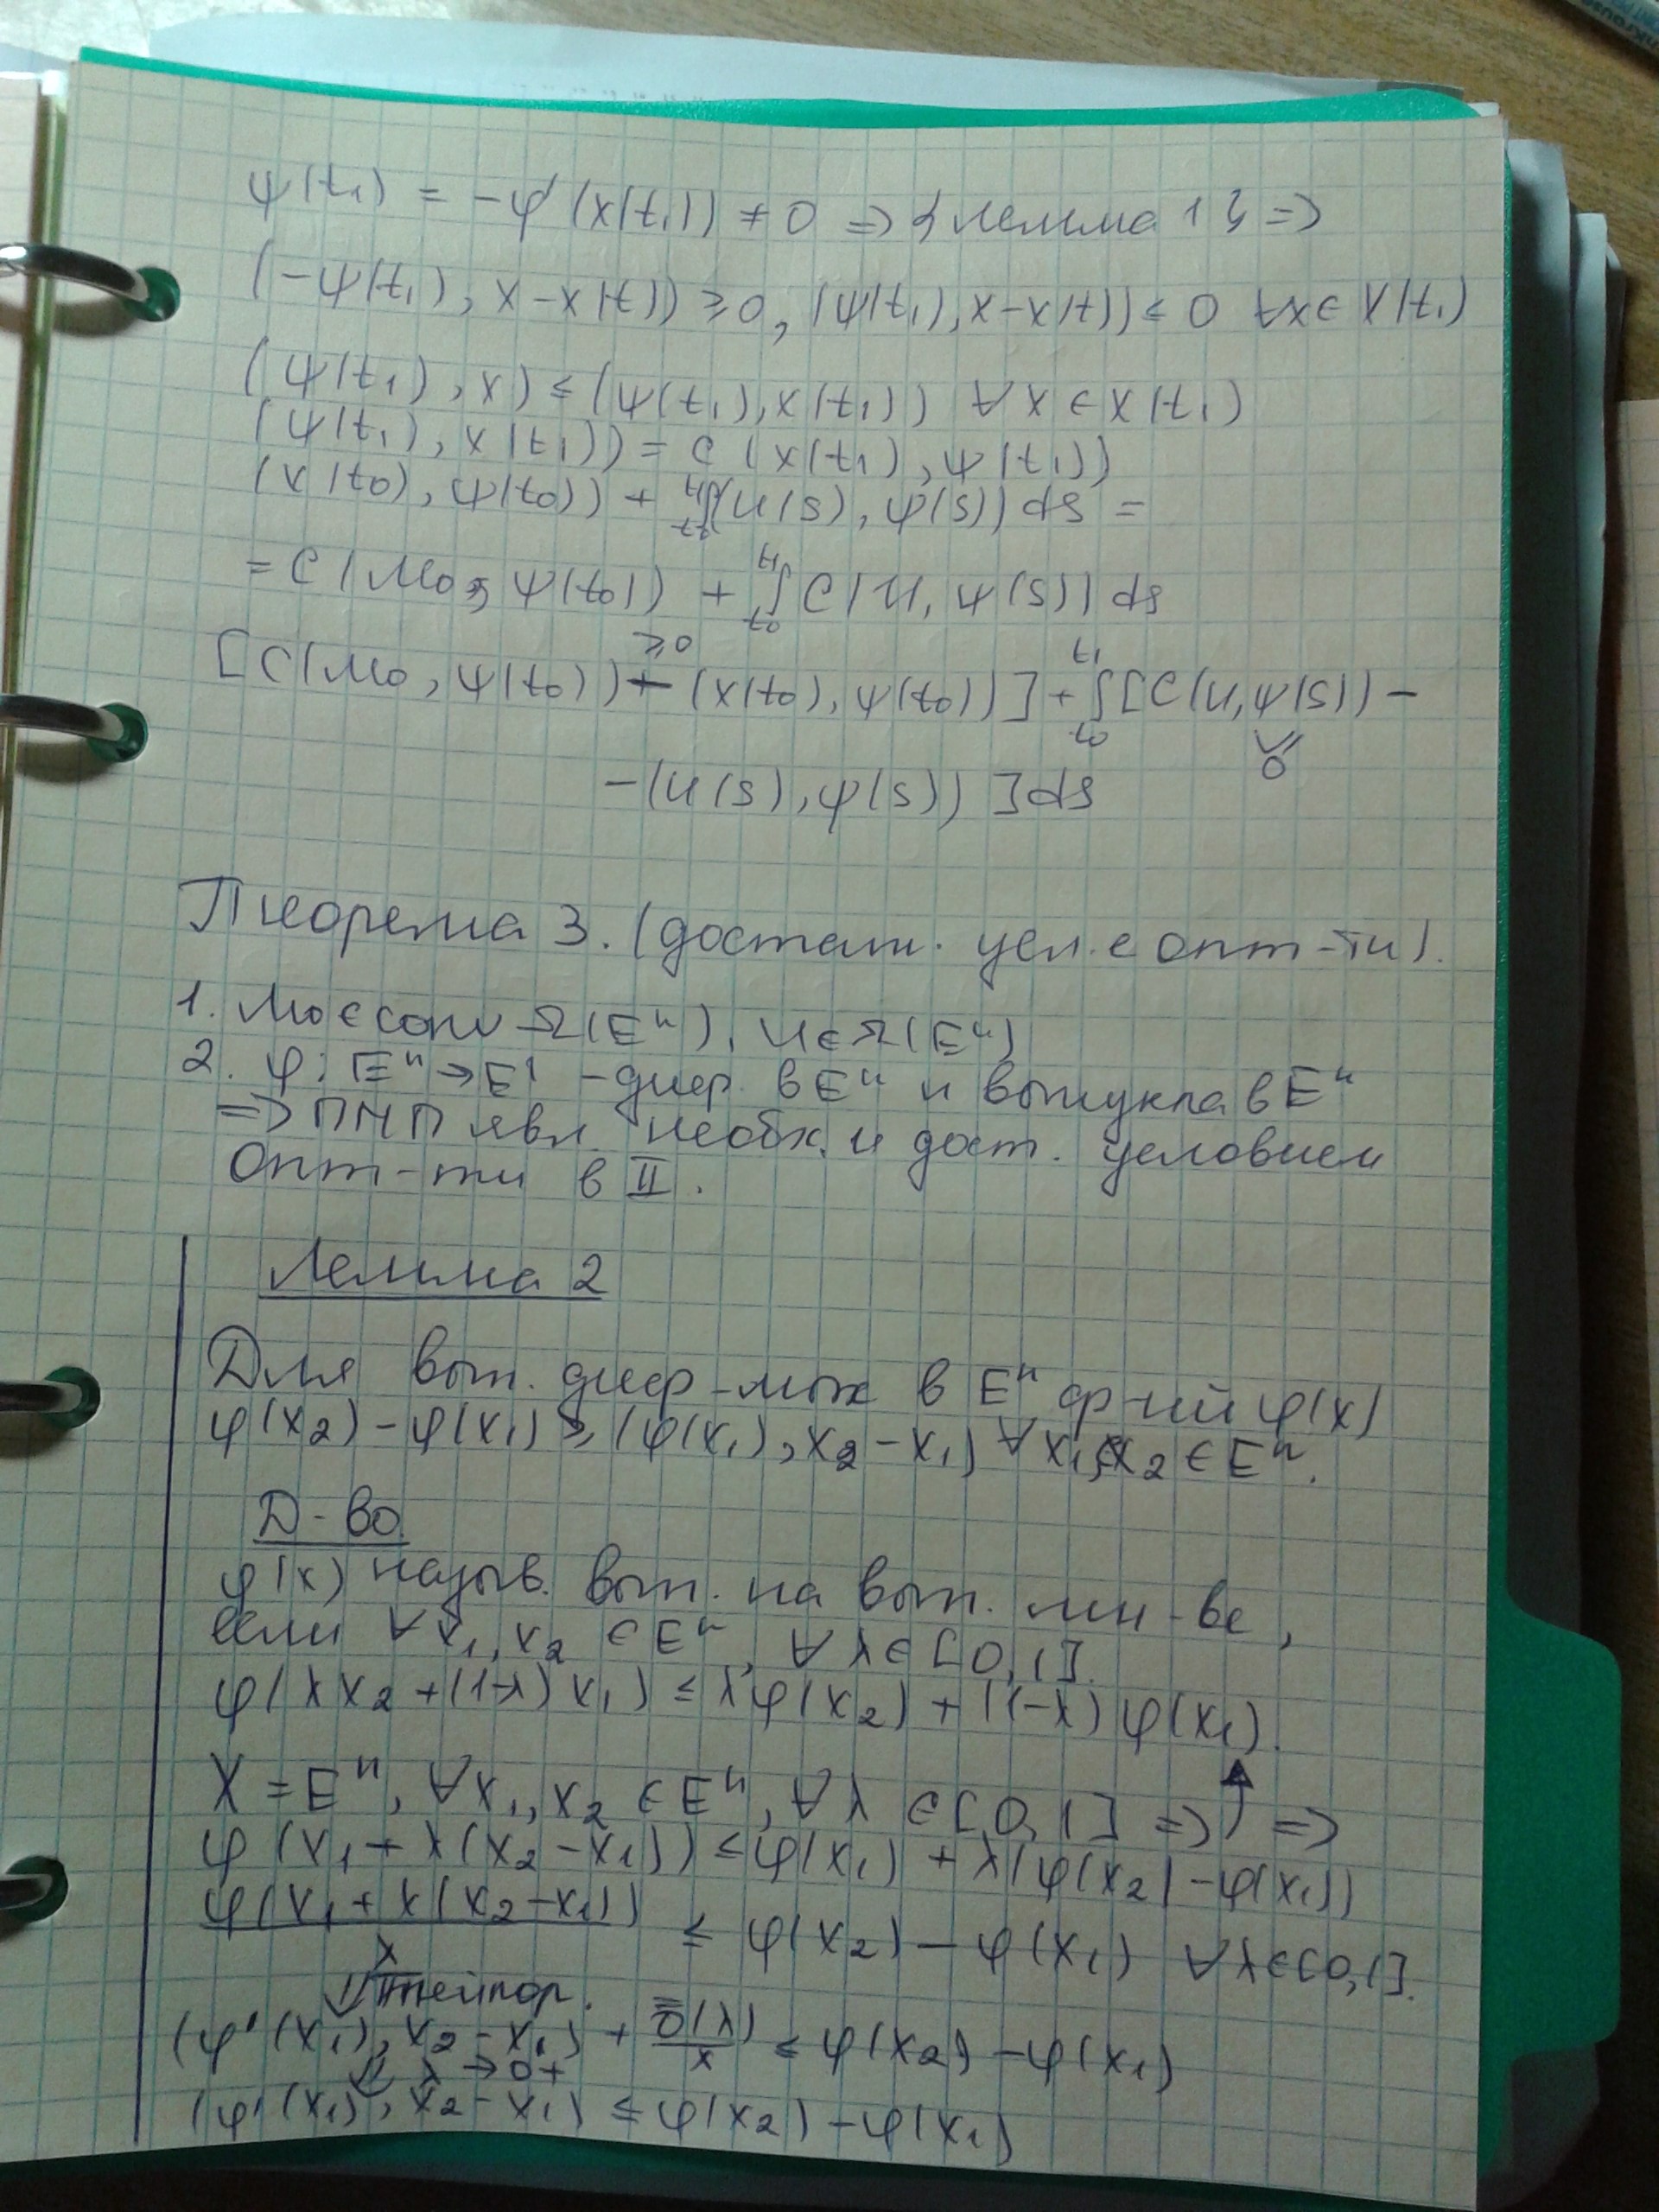 ψ(t₁) = -φ'(x(t₁)) ≠ 0 => {лемма 1} =>
(-ψ(t₁), x-x(t)) ≥ 0, (ψ(t₁), x-x(t)) ≤ 0 ∀x∈X(t₁)
(ψ(t₁), x) ≤ (ψ(t₁), x(t₁)) ∀x∈X(t₁)
(ψ(t₁), x(t₁)) = C(X(t₁), ψ(t₁))
(x(t₀), ψ(t₀)) + ∫ₜ₀ᵗ¹(u(s), ψ(s))ds =
= C(M₀, ψ(t₀)) + ∫ₜ₀ᵗ¹ C(U, ψ(s))ds
≥0
[C(M₀, ψ(t₀)) - (x(t₀), ψ(t₀))] + ∫ₜ₀ᵗ¹[C(U, ψ(s)) -
-(u(s), ψ(s))]ds
Теорема 3. (достат. усл.е опт-ти).
1. M₀∈conv Ω(Eⁿ), U∈Ω(Eⁿ)
2. φ: Eⁿ→E¹ - диф. в Eⁿ и выпукла в Eⁿ
=> ПМП явл. необх. и дост. условием
Опт-ти в II.
Лемма 2
Для вып. диф-мых в Eⁿ ф-ий φ(x)
φ(x₂) - φ(x₁) ≥ (φ(x₁), x₂-x₁) ∀x₁, x₂∈Eⁿ.
Д-во
φ(x) назыв. вып. на вып. мн-ве,
если ∀x₁, x₂ ∈Eⁿ, ∀λ∈[0,1].
φ(λx₂+(1-λ)x₁) ≤ λφ(x₂)+(1-λ)φ(x₁).
X = Eⁿ, ∀x₁, x₂ ∈Eⁿ, ∀λ ∈[0,1] => ) =>
φ(x₁+λ(x₂-x₁)) ≤ φ(x₁) + λ(φ(x₂)-φ(x₁))
φ(x₁+λ(x₂-x₁)) / λ ≤ φ(x₂) - φ(x₁) ∀λ∈[0,1].
⇓ тейлор.
(φ'(x₁), x₂-x₁) + o(λ)/λ ≤ φ(x₂) - φ(x₁)
⇓ λ→0+
(φ'(x₁), x₂-x₁) ≤ φ(x₂) - φ(x₁)